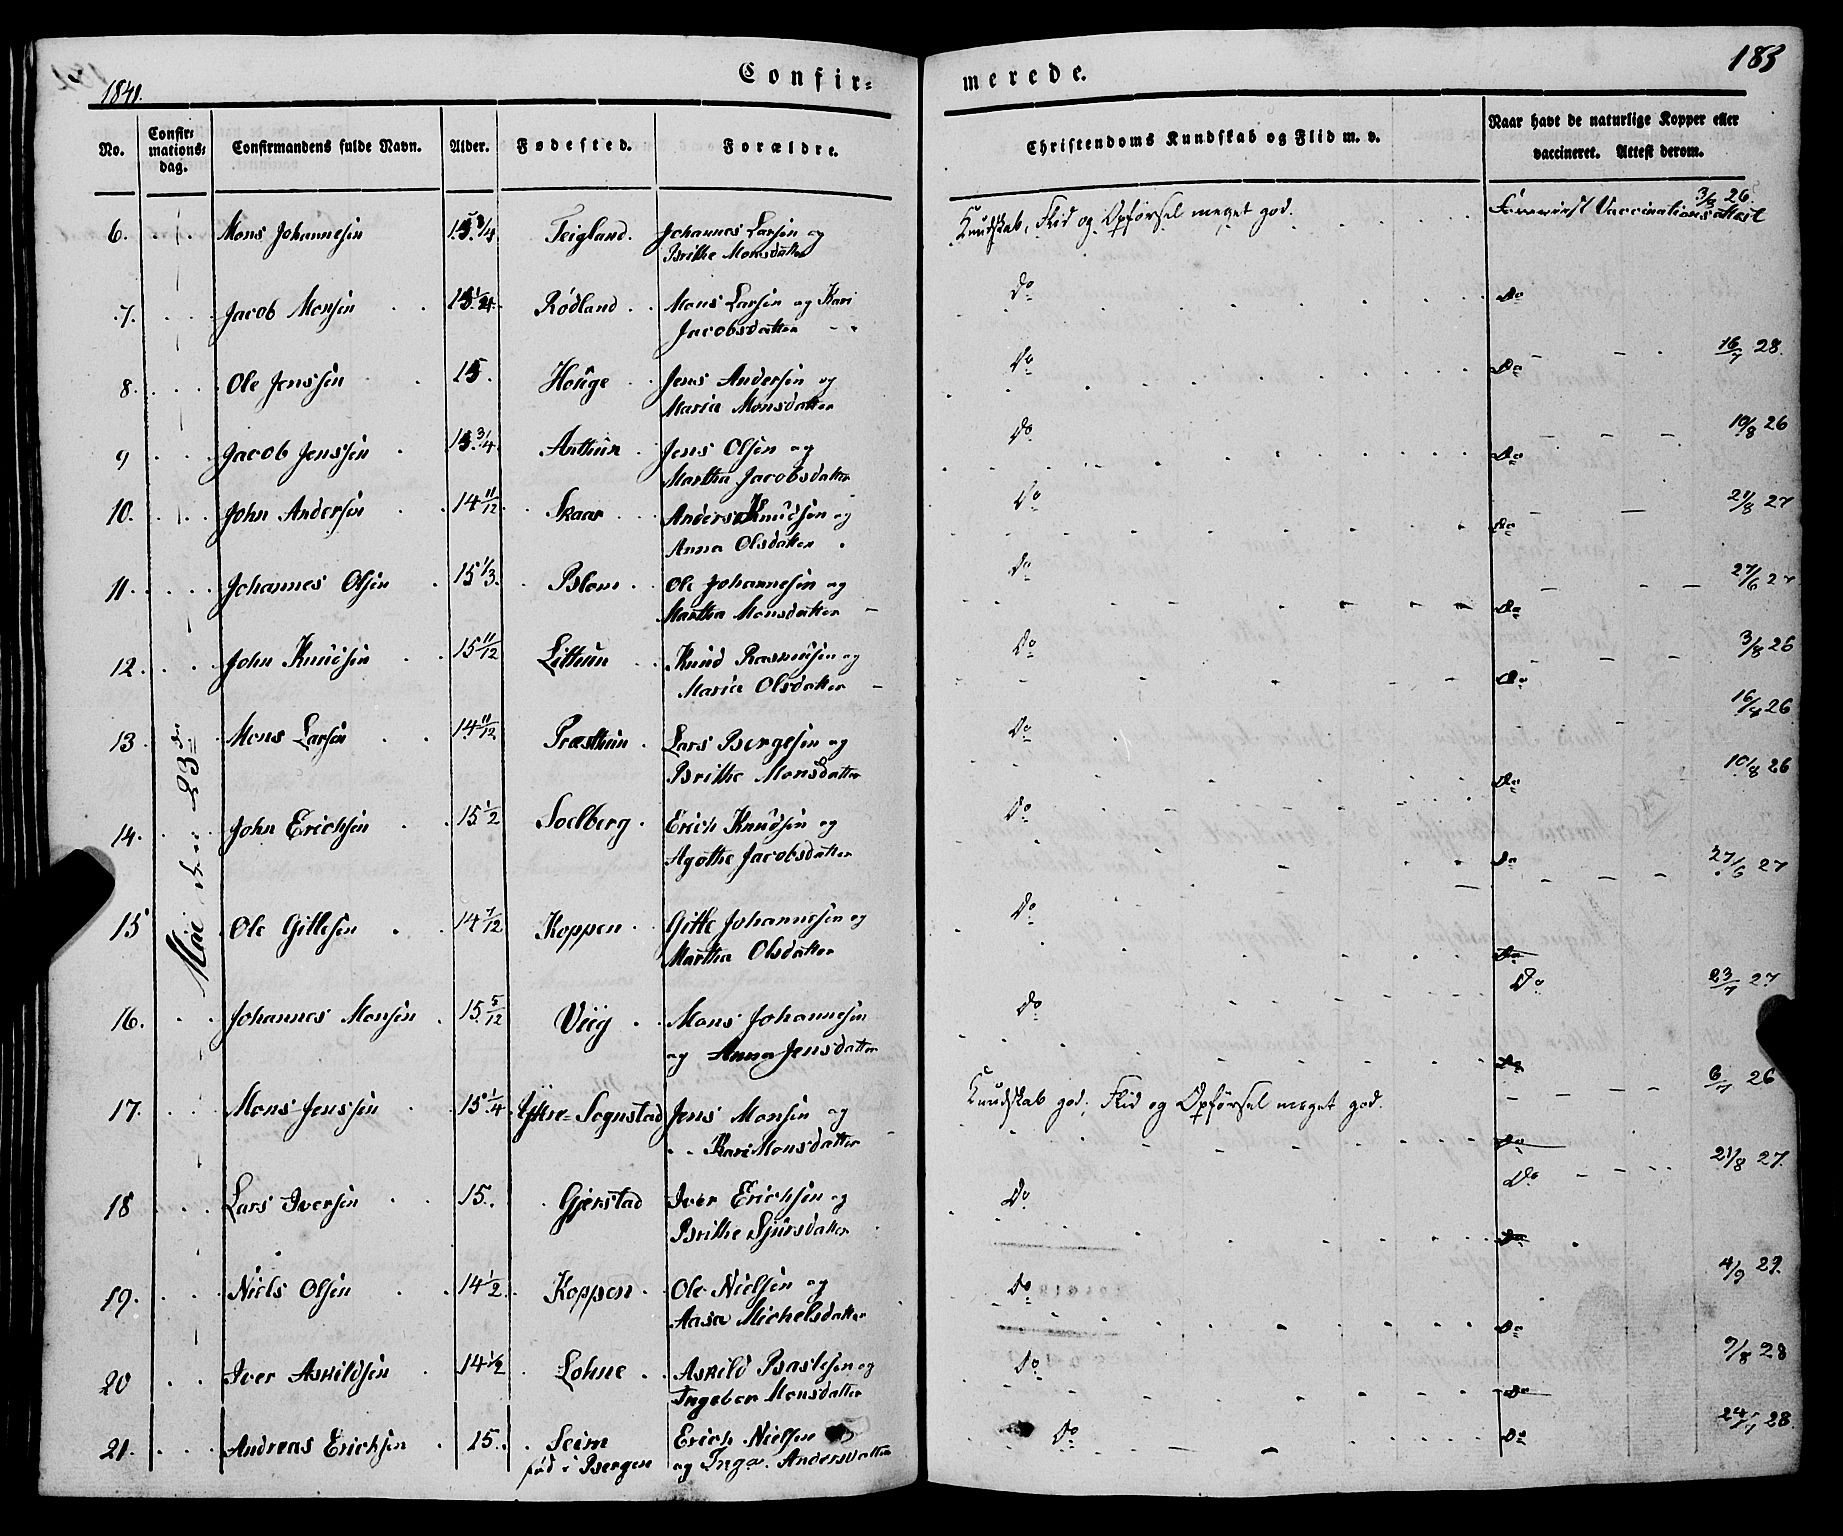 183
1841.
Confir= merede.
No. Confir= mations= dag. Confirmandens fulde Navn. Alder. Fødested. Forældre. Christendoms Kundskab og Flid m. v. Naar havt de naturlige Kopper eller vaccineret. Attest derom.
Mai den 23de
6. Mons Johannesen 15 3/4 Teigland. Johannes Larsen og Kundskab, Flid og Opførsel meget god. Vaccinationsattest 3/8 26.
Brithe Monsdatter
7. Jacob Monsen Rødland Mons Larsen og Kari Do Do
Jacobsdatter
16/7 28.
8. Ole Jenssen 15. Houge Jens Andersen og Do Do
Maria Monsdatter
10/8 26
9 Jacob Jenssen 15 3/4 Arthun Jens Olsen og Do Do
Martha Jacobsdatter
21/8 27
10. John Andersen 14 11/12 Skaar Anders Knudsen og Do Do
Anna Olsdatter
27/6 27
11. Johannes Olsen 15 1/3. Blom Ole Johannesen og Do Do
Martha Monsdatter
3/8 26
12. John Knudsen 15 11/12 Litthun Knud Rasmusen og Do Do
Maria Olsdatter
16/8 26
13. Mons Larsen 14 11/12 Præsthun Lars Bergesen og Do Do
Brithe Monsdatter
10/8 26
14. John Erichsen 15 1/2 Soelberg Erich Knudsen og Do Do
Agothe Jacobsdatter
27/6 27
15 Ole Gittesen 14 7/12 Koppen Gitte Johannesen og Do Do
Martha Olsdatter
Do 23/7 27
16. Johannes Monsen 15 5/12 Viig Mons Johannesen Do Do
og Anna Jensdatter
6/7 26
17. Mons Jenssen 15 1/4 Yttre-Sognstad Jens Monsen og Kundskab god, Flid og Opførsel meget god. Do
Kari Monsdatter
Do 21/8 27.
18 Lars Iversen 15. Gjerstad Iver Erichsen og Do Do
Brithe Sjursdatter
4/9 29.
19. Niels Olsen 14 1/2 Koppen Ole Nielsen og Do Do
Aasa Michelsdatter
9/8 28
20 Iver Askildsen 14 1/2 Lohne Askild Baslesen og Do Do
Ingebor Monsdatter
28
21. Andreas Erichsen 15. Seim Erich Nielsen Do Do
fød i Bergen og Inga Andersdatter